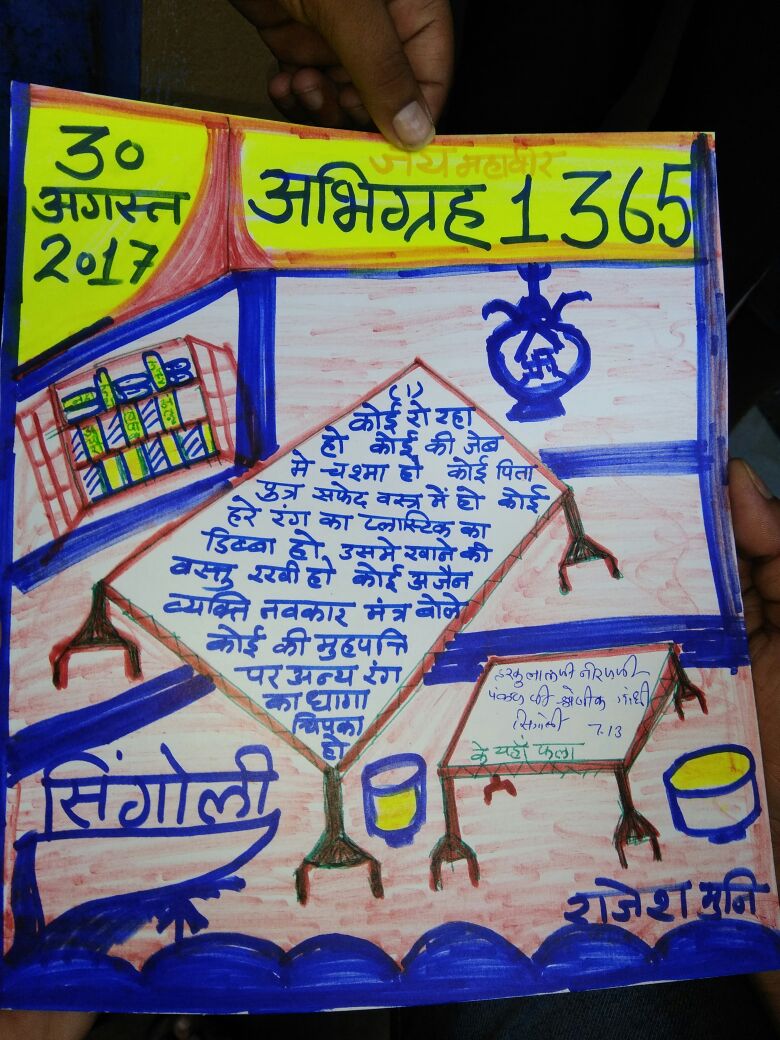 जय महावीर
30
अगस्त
2017
अभिग्रह 1365
(1)
कोई रो रहा
हो कोई की जेब
मे चश्मा हो कोई पिता
पुत्र सफेद वस्त्र में हो कोई
हरे रंग का प्लास्टिक का
डिब्बा हो, उसमे खाने की
वस्तु रखी हो कोई अजैन
व्यक्ति नवकार मंत्र बोले
कोई की मुहपत्ति
पर अन्य रंग
का धागा
चिपका
हो
गांधी
सिंगोली 7.13
के यहाँ फला
सिंगोली
राजेश मुनि